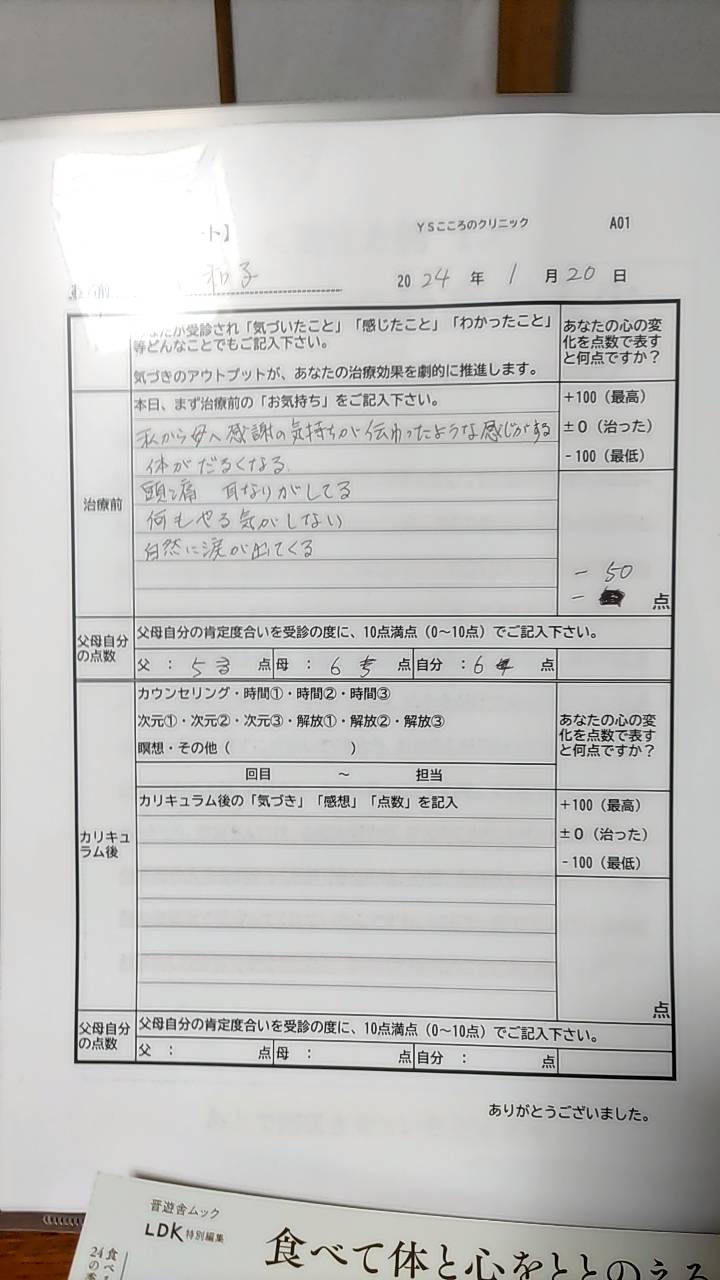 ト】
YSこころのクリニック
A01
お名前 和子
2024年1月20日
なたが受診され「気づいたこと」「感じたこと」「わかったこと」
等どんなことでもご記入下さい。
気づきのアウトプットが、あなたの治療効果を劇的に推進します。
あなたの心の変
化を点数で表す
と何点ですか？
治療前
本日、まず治療前の「お気持ち」をご記入下さい。
私から母へ感謝の気持ちが伝わったような感じがする
体がだるくなる
頭痛 耳なりがしてる
何もやる気がしない
自然に涙が出てくる
+100（最高）
±0（治った）
-100（最低）
- 50
- 点
父母自分
の点数
父母自分の肯定度合いを受診の度に、10点満点（0〜10点）でご記入下さい。
父：5 点 母：6 点 自分：6 点
カリキュ
ラム後
カウンセリング・時間①・時間②・時間③
次元①・次元②・次元③・解放①・解放②・解放③
瞑想・その他（ ）
回目 〜 担当
あなたの心の変
化を点数で表す
と何点ですか？
カリキュラム後の「気づき」「感想」「点数」を記入
+100（最高）
±0（治った）
-100（最低）
点
父母自分
の点数
父母自分の肯定度合いを受診の度に、10点満点（0〜10点）でご記入下さい。
父： 点 母： 点 自分： 点
ありがとうございました。
晋遊舎ムック
LDK特別編集
食べて体と心をととのえる